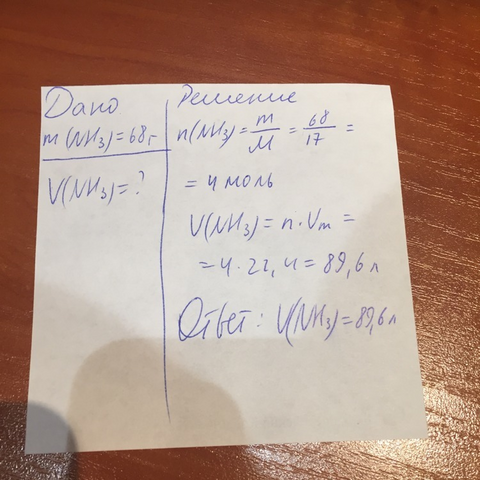 Дано
m(NH₃)=68г
V(NH₃)=?
Решение
n(NH₃)=m/M=68/17=
=4 моль
V(NH₃)=n·Vm=
=4·22,4=89,6л
Ответ: V(NH₃)=89,6л